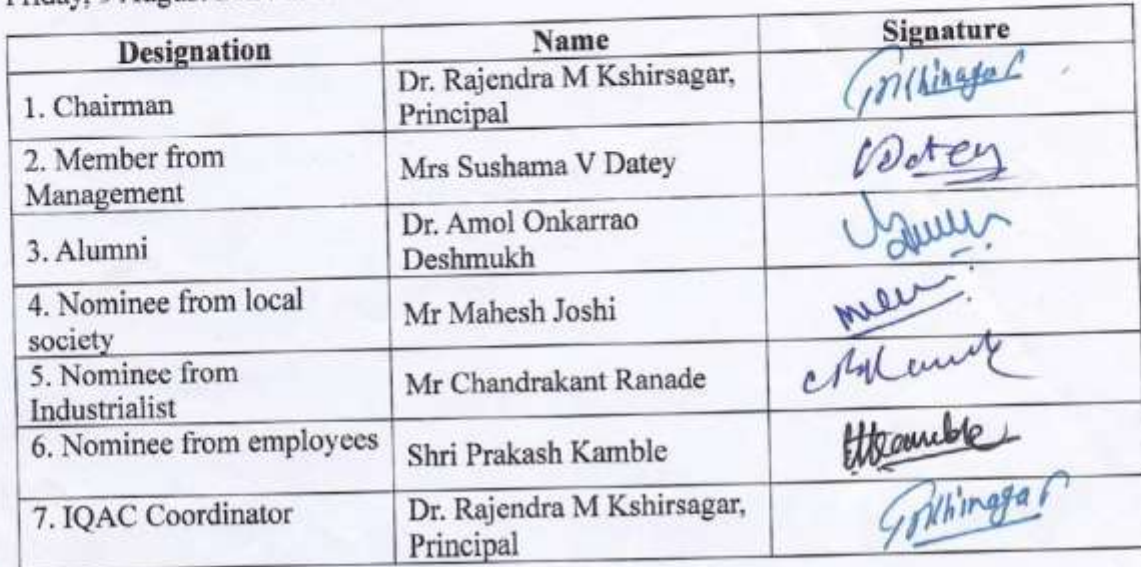 Designation Name Signature
1. Chairman
Dr. Rajendra M Kshirsagar,
Principal
2. Member from
Management
Mrs Sushama V Datey
Datey
3. Alumni
Dr. Amol Onkarrao
Deshmukh
4. Nominee from local
society
Mr Mahesh Joshi
5. Nominee from
Industrialist
Mr Chandrakant Ranade
6. Nominee from employees
Shri Prakash Kamble
7. IQAC Coordinator
Dr. Rajendra M Kshirsagar,
Principal